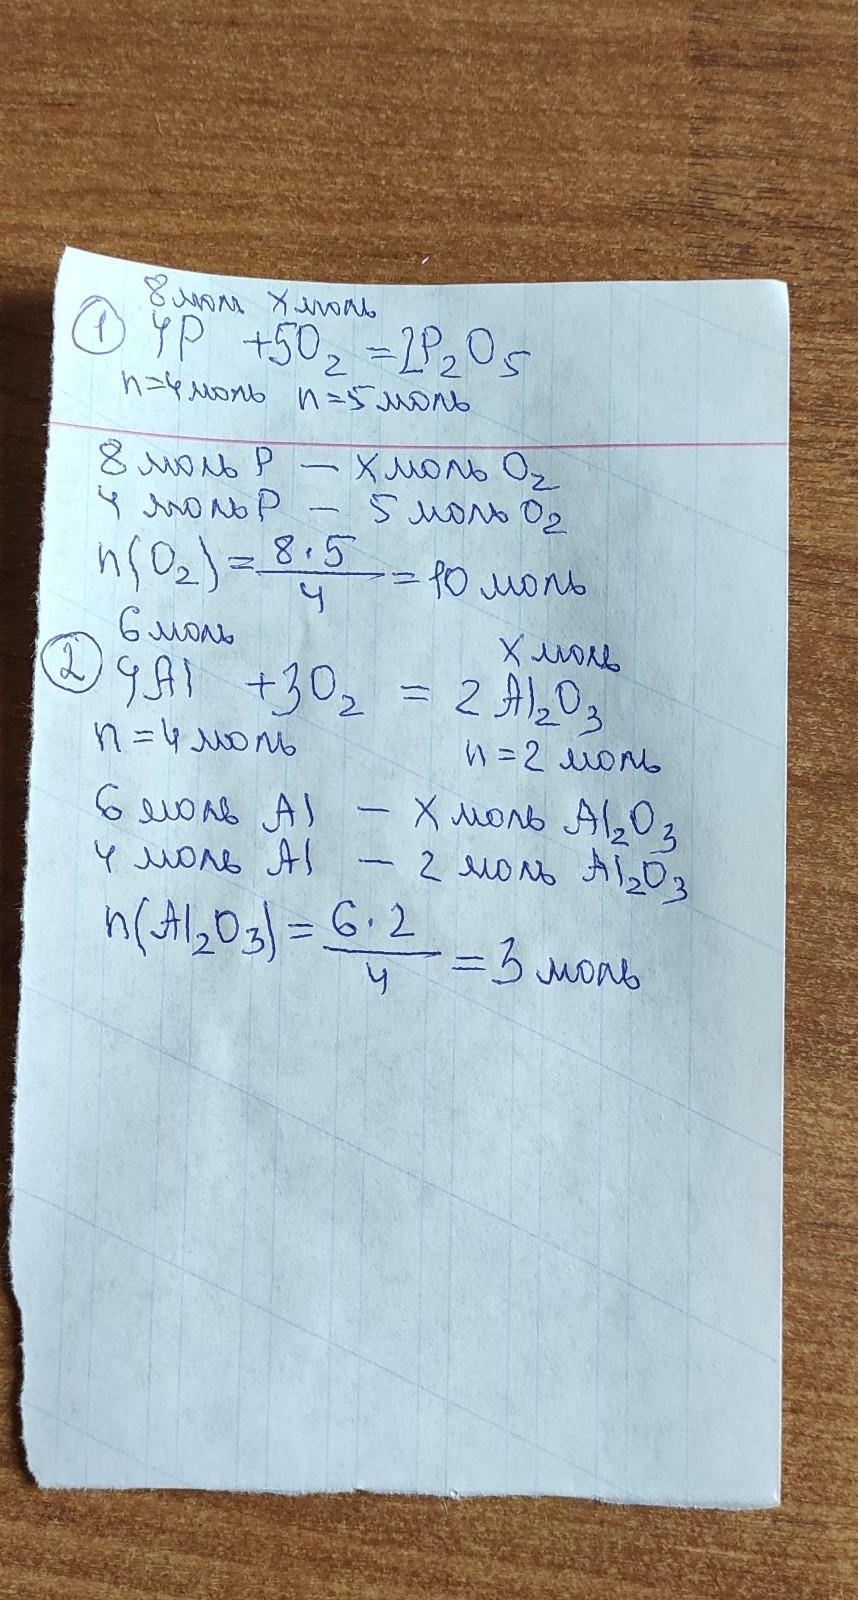 8 моль x моль
① 4P + 5O₂ = 2P₂O₅
n=4 моль n=5 моль
8 моль P — x моль O₂
4 моль P — 5 моль O₂
n(O₂) = 8·5/4 = 10 моль
6 моль x моль
② 4Al + 3O₂ = 2 Al₂O₃
n = 4 моль n = 2 моль
6 моль Al — x моль Al₂O₃
4 моль Al — 2 моль Al₂O₃
n(Al₂O₃) = 6·2/4 = 3 моль